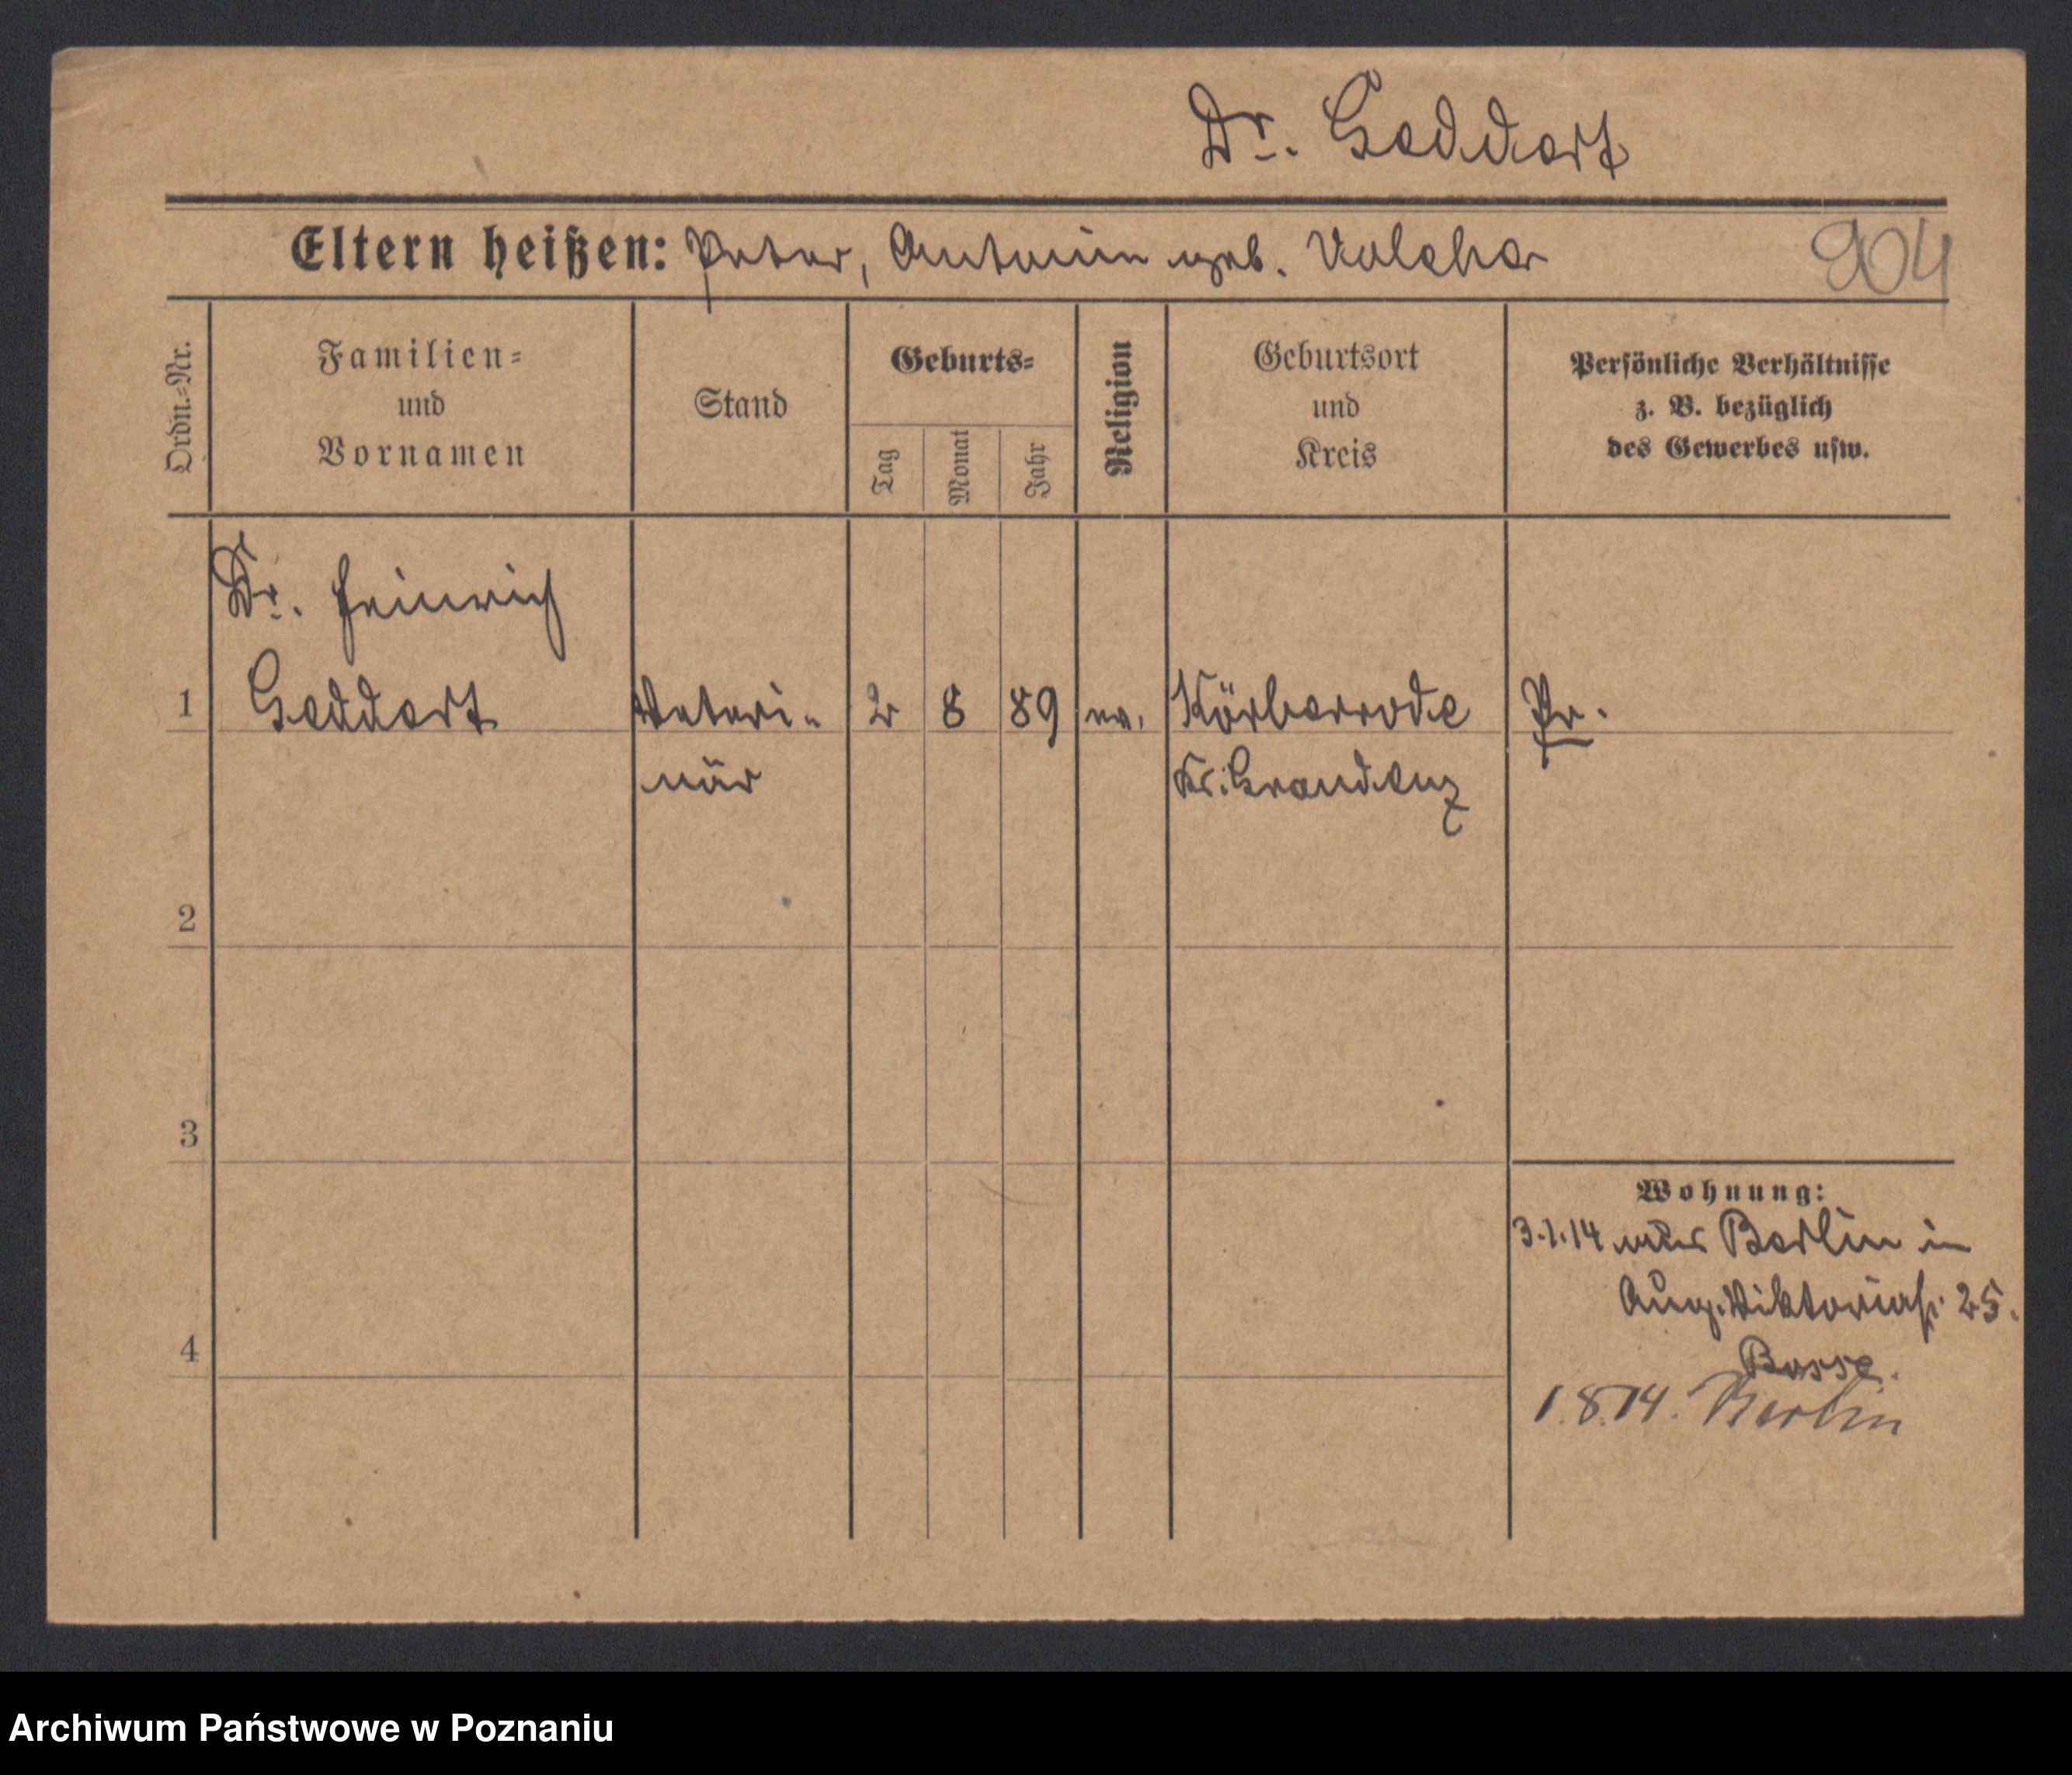 Dr. Goddart
Eltern heißen: Peter, Antonin geb. Volcha
904
Ordn.=Nr.
Familien=
und
Vornamen
Stand
Geburts=
Tag
Monat
Jahr
Religion
Geburtsort
und
Kreis
Persönliche Verhältnisse
z. B. bezüglich
des Gewerbes usw.
Dr. Heinrich
1 Goddart Veteri- 2 8 89 ev. Körberrode Pr.
när Kr. Graudenz
2
3
Wohnung:
3.1.14 aus Berlin in
Aug. Viktoriastr. 25.
Bosse.
4
1.8.14. Berlin
Archiwum Państwowe w Poznaniu